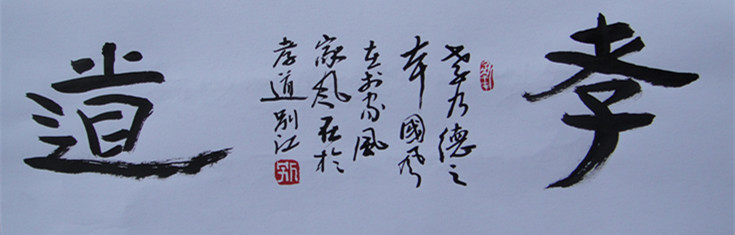 孝
孝乃德之
本國風
在於家風
家风在於
孝道
道